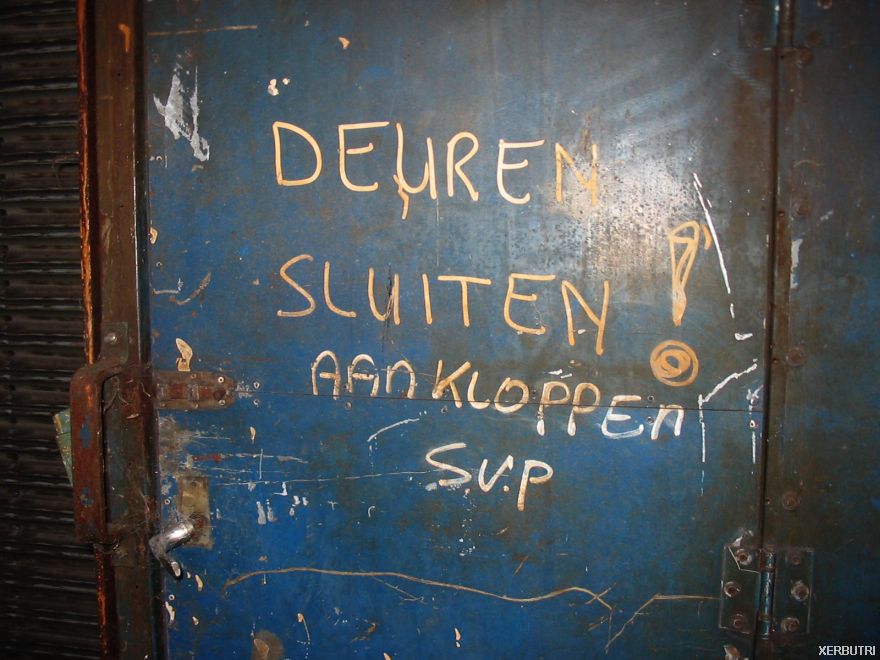 DEUREN
SLUITEN!
AANKLOPPEN
S.V.P
XERBUTRI